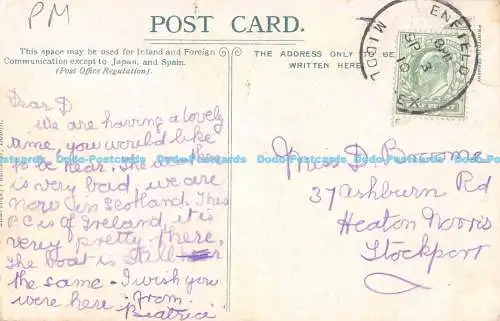 PM
POST CARD.
This space may be used for Inland and Foreign
Communication except to Japan, and Spain.
(Post Office Regulation).
THE ADDRESS ONLY BE
WRITTEN HERE.
ENFIELD
MIDDLX
SP 3
10
Dear D
We are having a lovely
time, you would like
to be hear. The weather
is very bad, we are
now in Scotland. This
P.C is of Ireland, it is
very pretty there,
The boat is still
the same - I wish you
were here. From
Beatrice
Miss D
37 Ashburn Rd
Heaton Norris
Stockport
Dado-Postcards Dado-Postcards Dado-Postcards Dado-Postcards Dado-Postcards Dado-Postcards